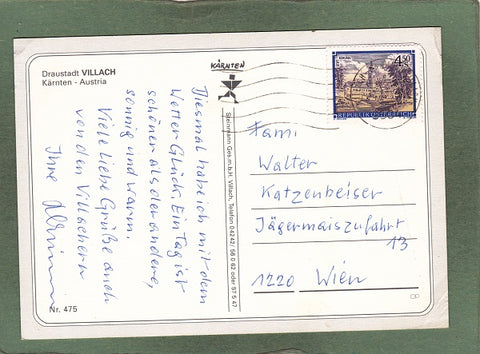 Draustadt VILLACH
Kärnten - Austria
KÄRNTEN
Diesmal habe ich mit dem
Wetter Glück. Ein Tag ist
schöner als der andere,
sonnig und warm.
Viele liebe Grüße auch
von den Villachern
Ihre
Nr. 475
Steinmann Ges.m.b.H. Villach, Telefon 04242/ 56 0 62 oder 57 5 47
4.50
REPUBLIK ÖSTERREICH
Fami
Walter
Katzenbeiser
Jägermaiszufahrt
13
1220 Wien